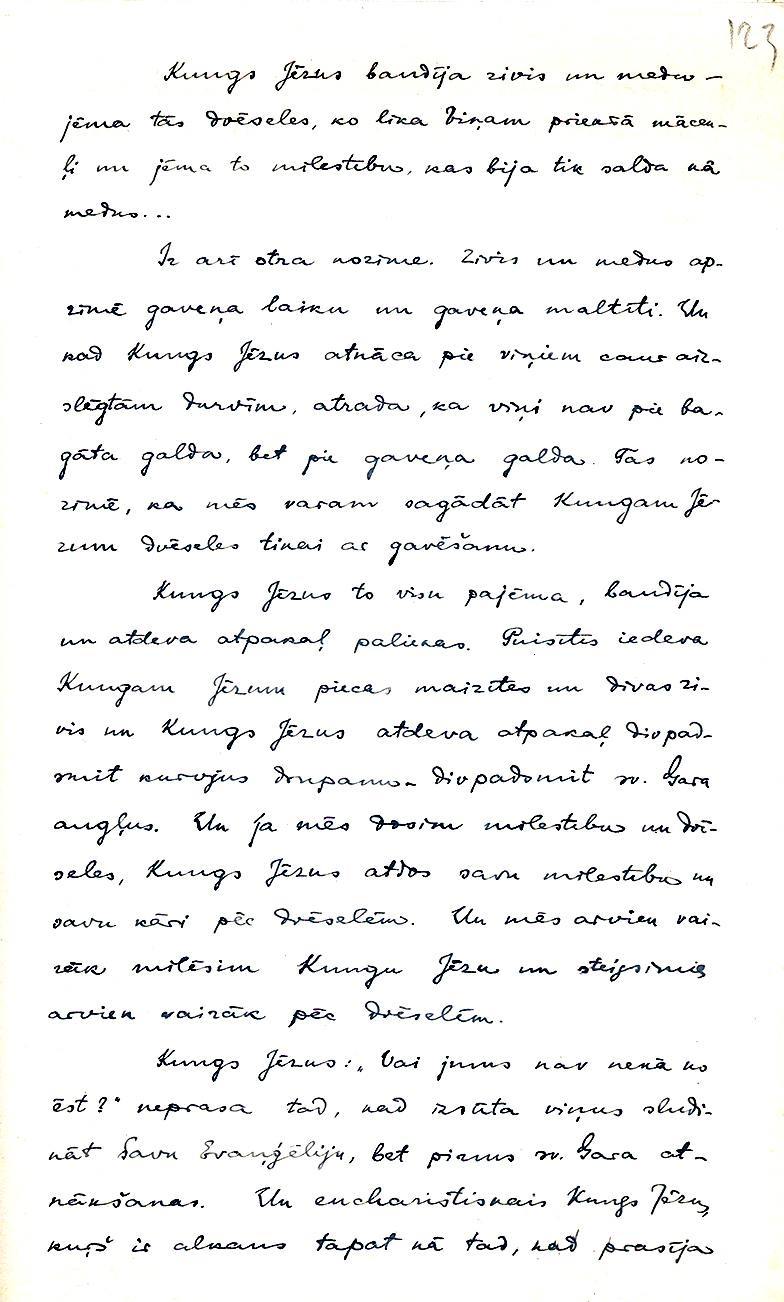 123
Kungs Jēzus baudīja zivis un medu –
jēma tās dvēseles, ko lika Viņam priekšā mācek-
ļi un jēma to mīlestību, kas bija tik salda kā
medus...
Ir arī otra nozīme. Zivis un medus ap-
zīmē gaveņa laiku un gaveņa maltīti. Un
kad Kungs Jēzus atnāca pie viņiem caur aiz-
slēgtām durvīm, atrada, ka viņi nav pie ba-
gāta galda, bet pie gaveņa galda. Tas no-
zīmē, ka mēs varam sagādāt Kungam Jē-
zum dvēseles tikai ar gavēšanu.
Kungs Jēzus to visu pajēma, baudīja
un atdeva atpakaļ paliekas. Puisītis iedeva
Kungam Jēzum piecas maizītes un divas zi-
vis un Kungs Jēzus atdeva atpakaļ divpad-
smit kurvjus drupanu – divpadsmit sv. Gara
augļus. Un ja mēs dosim mīlestību un dvē-
seles, Kungs Jēzus atdos savu mīlestību un
savu kāri pēc dvēselēm. Un mēs arvien vai-
rāk mīlēsim Kungu Jēzu un steigsimies
arvien vairāk pēc dvēselēm.
Kungs Jēzus: „Vai jums nav nekā ko
ēst?" neprasa tad, kad izsūta viņus sludi-
nāt Savu Evaņģēliju, bet pirms sv. Gara at-
nākšanas. Un eucharistiskais Kungs Jēzus,
kuŗš ir alkans tāpat kā tad, kad prasīja